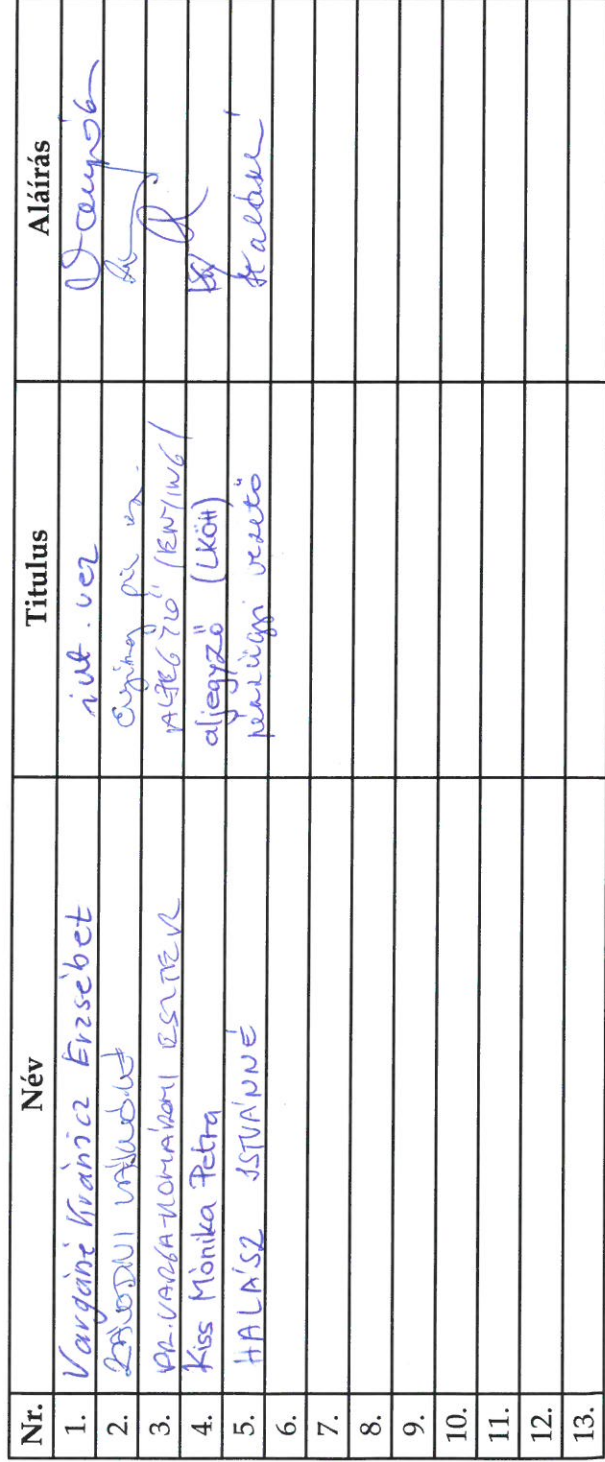 Nr. Név Titulus Aláírás
1. Vargáné Kránicz Erzsébet int. vez
2. ZÁVODNI
3. DR. VARGA-KOMÁROMI ESZTER ALJEGYZŐ (ENYING)
4. Kiss Mónika Petra aljegyző (LKÖH)
5. HALÁSZ ISTVÁNNÉ pénzügyi vezető Halászné
6.
7.
8.
9.
10.
11.
12.
13.